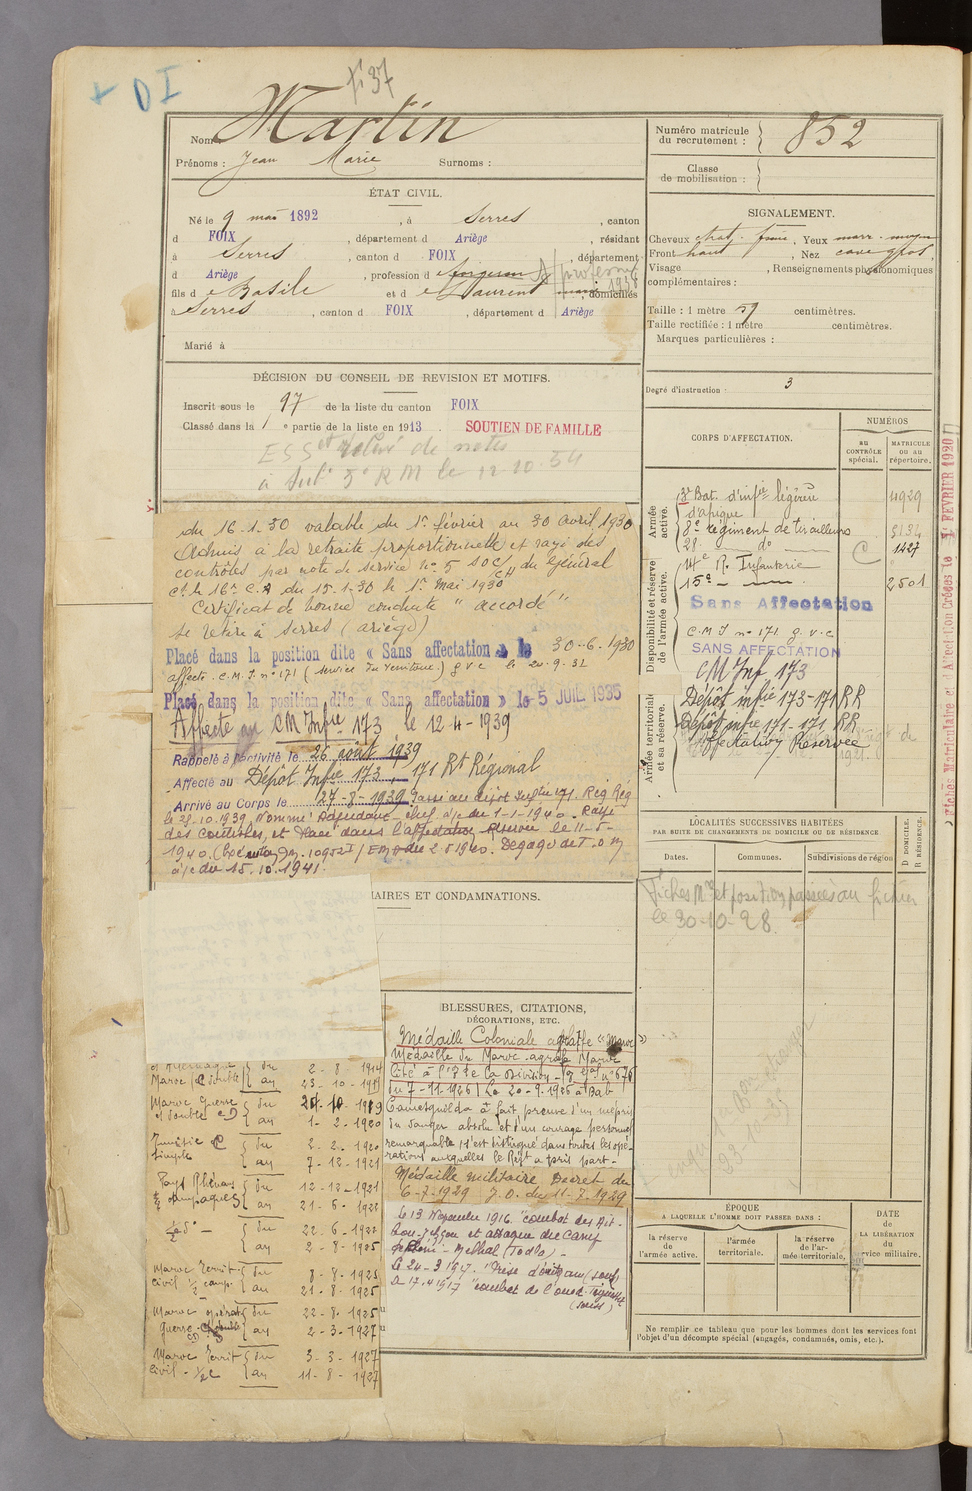 + DI
Nom Martin
Prénoms : Jean Marie Surnoms :
ÉTAT CIVIL.
Né le 9 mai 1892, à Serres, canton
d FOIX, département d Ariège, résidant
à Serres, canton d FOIX, département
d Ariège, profession d forgeron
fils d e Basile et d e Laurent, domiciliés
à Serres, canton d FOIX, département d Ariège
Marié à
DÉCISION DU CONSEIL DE REVISION ET MOTIFS.
Inscrit sous le 97 de la liste du canton FOIX
Classé dans la 1e partie de la liste en 1913 SOUTIEN DE FAMILLE
de notes
5e RM le 12.10.34
du 16.1.30 valable du 1er février au 30 avril 1930
Admis à la retraite proportionnelle et rayé des
contrôles par note de service n° 5 du Général
Ct le 16e C.A du 15-1-30 le 1er Mai 1930
Certificat de bonne conduite "accordé"
Se retire à Serres (ariège)
Placé dans la position dite « Sans affectation » le 30-6-1930
affecté C.M.I. n° 171 (service du territoire) g v c le 20-9-32
Placé dans la position dite « Sans affectation » le 5 JUIL 1935
Affecté au CM Infie 173 le 12-4-1939
Rappelé à l'activité le 25 août 1939
Affecté au Dépôt Infie 173, 171 Rt Régional
Arrivé au Corps le 27-8-1939. Passé au dépôt Infie 171. Rég Rég
le 28.10.1939. Nommé Adjudant-chef a/c du 1-1-1940. Rayé
des contrôles, et placé dans l'affectation Réservée le 11-5-
1940. Dégagé de T.O.M
a/c du 15.10.1941.
AIRES ET CONDAMNATIONS.
BLESSURES, CITATIONS,
DÉCORATIONS, ETC.
Médaille Coloniale agraffe "Maroc"
Médaille du Maroc agrafe Maroc
Cité à l'O de la Division n° 676
du 7-11-1926 Le 20-9-1926 à Bab
a fait preuve d'un mépris
du danger absolu et d'un courage personnel
remarquable s'est distingué dans toutes les opé-
rations auxquelles le Regt a pris part-
Médaille militaire Décret du
6-7-1929 J.O. du 11-7-1929
Le 13 Novembre 1916. "combat des Aït-
et attaque du camp
(Tadla) -
Le 24-3-1917. "Prise
Le 17-4-1917 "combat de l'oued
du 2-8-1914
Maroc au 23-10-1919
Maroc Guerre du
et double au 1-2-1920
Tunisie du 2-2-1920
simple au 7-12-1921
Pays Rhénans du 12-12-1921
½ campagnes au 21-6-1922
d° - du 22-6-1922
au 2-8-1925
Maroc Territ du 8-8-1925
civil ½ camp. au 21-8-1925
Maroc opérat du 22-8-1925
guerre au 2-3-1927
Maroc Territ du 3-3-1927
civil - ½ c au 11-8-1927
Numéro matricule
du recrutement : 852
Classe
de mobilisation :
SIGNALEMENT.
Cheveux chat. Yeux marr. moyen
Front haut, Nez cave gros
Visage, Renseignements physionomiques
complémentaires :
Taille : 1 mètre 59 centimètres.
Taille rectifiée : 1 mètre centimètres.
Marques particulières :
Degré d'instruction : 3
CORPS D'AFFECTATION.
NUMÉROS
au
CONTRÔLE
spécial.
MATRICULE
ou au
répertoire.
Armée
active.
3e Bat. d'infie légère 4929
d'afrique
8e régiment de tirailleurs 5134
28 do C 1427
Disponibilité et réserve
de l'armée active.
14e R. Infanterie
15e - 2501
Sans Affectation
C.M.I n° 171 g.v.c
SANS AFFECTATION
CM Inf 173
Armée territoriale
et sa réserve.
Dépôt infie 173-171 RR
Dépôt infie 171-171 RR
Affectation Réservée
LOCALITÉS SUCCESSIVES HABITÉES
PAR SUITE DE CHANGEMENTS DE DOMICILE OU DE RÉSIDENCE
D DOMICILE.
R RÉSIDENCE.
Dates. Communes. Subdivisions de région
Fiches Mle et position passées au fichier
le 30-10-28
ÉPOQUE
A LAQUELLE L'HOMME DOIT PASSER DANS :
la réserve
de
l'armée active.
l'armée
territoriale.
la réserve
de l'ar-
mée territoriale.
DATE
de
LA LIBÉRATION
du
service militaire.
Ne remplir ce tableau que pour les hommes dont les services font
l'objet d'un décompte spécial (engagés, condamnés, omis, etc.).
Fiches Matriculaire et d'Affectation Créées le 1er FEVRIER 1920